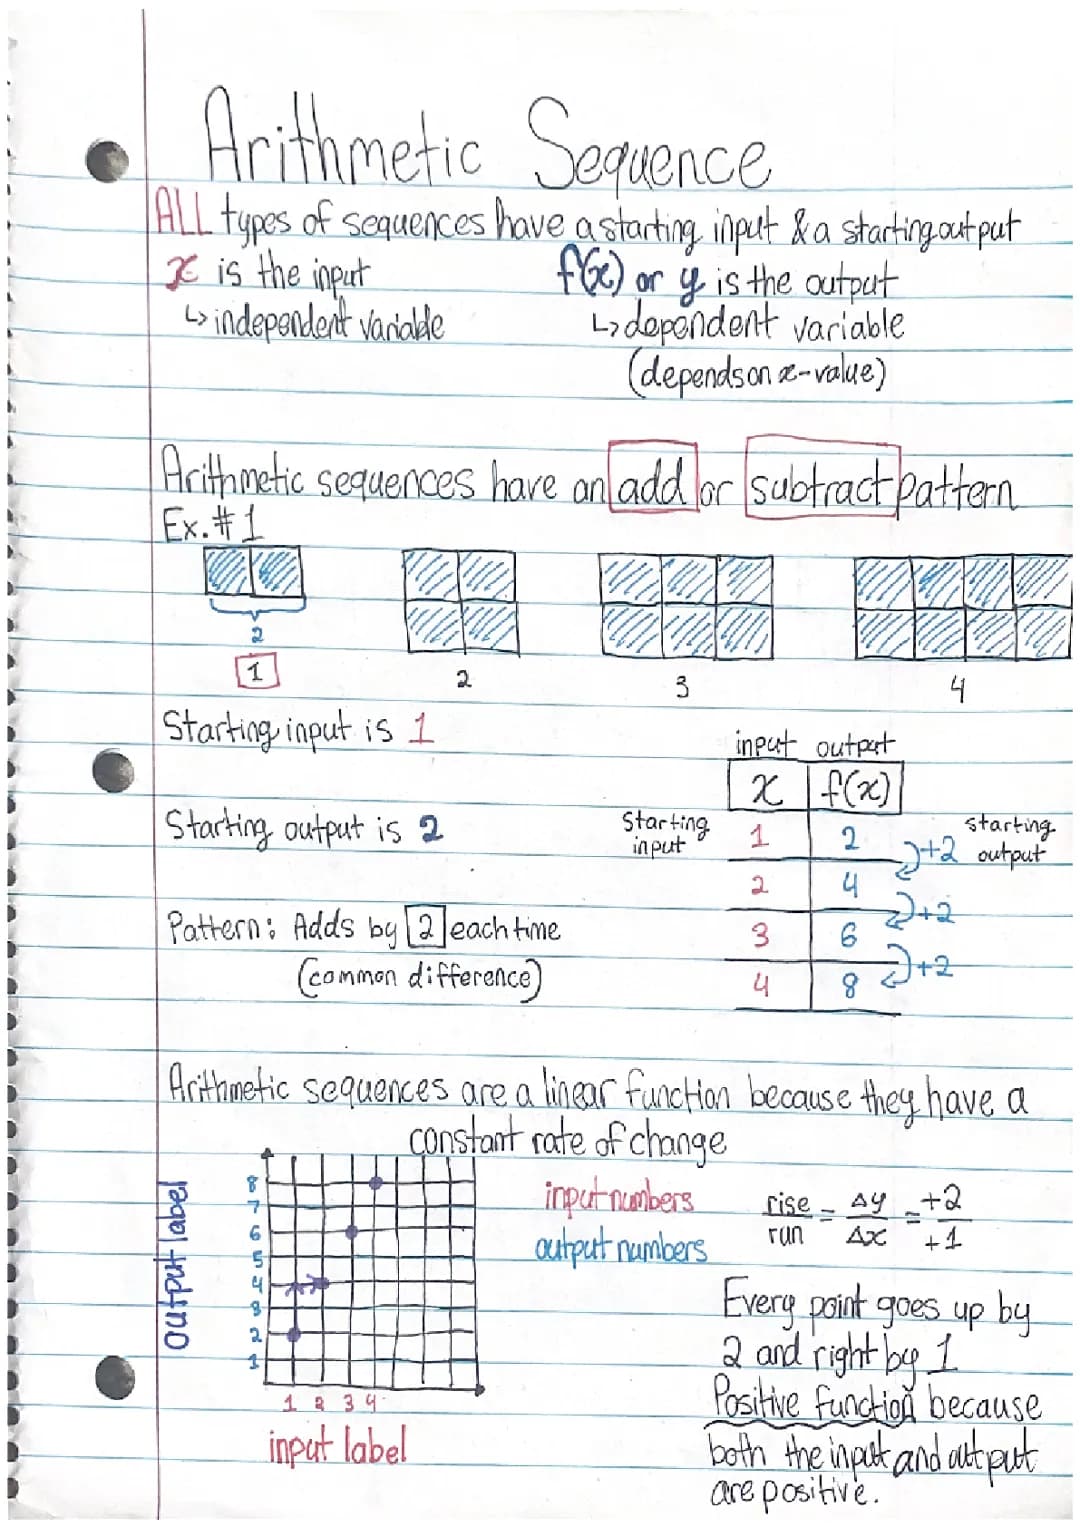 Arithmetic Sequence
ALL types of sequences have a starting input & a starting output
x is the input
f(x) or y is the output
↳ independent variable
↳ dependent variable
(depends on x-value)
Arithmetic sequences have an add or subtract pattern
Ex. #1
2
1
2
3
4
Starting input is 1
input output
x f(x)
Starting output is 2
Starting input
1 2
+2
starting output
2 4
+2
Pattern: Adds by 2 each time
3 6
+2
(common difference)
4 8
Arithmetic sequences are a linear function because they have a
constant rate of change
output label
8
7
6
5
4
3
2
1
1 2 3 4
input label
input numbers
output numbers
rise/run = Δy/Δx = +2/+1
Every point goes up by
2 and right by 1
Positive function because
both the input and output
are positive.